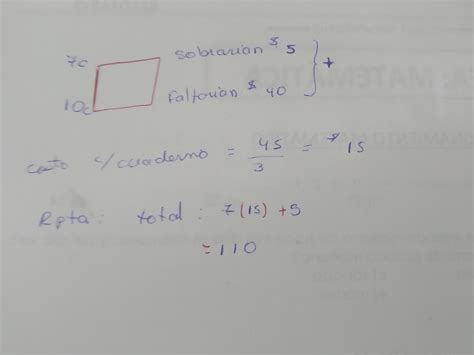 7c sobrarian $ 5
10c faltarian $ 40 +
costo c/cuaderno = 45/3 = $ 15
Rpta: total: 7(15) + 5
= 110